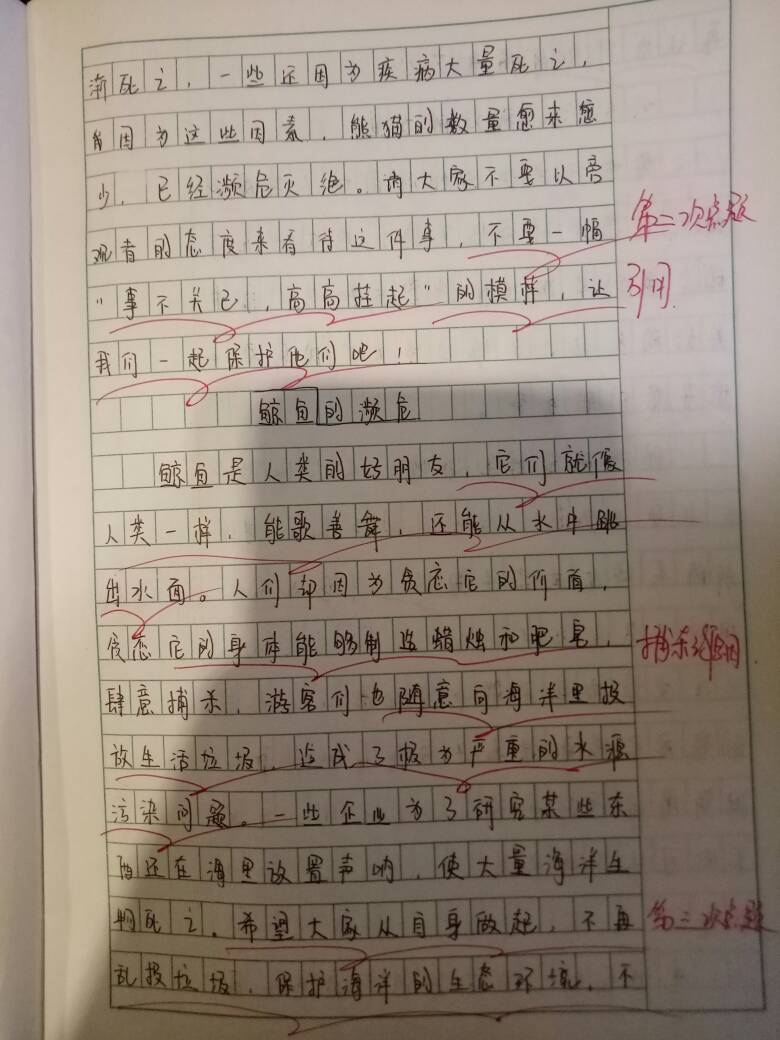 渐死亡，一些还因为疾病大量死亡，
因为这些因素，熊猫的数量愈来愈
少，已经濒危灭绝。请大家不要以旁
观者的态度来看待这件事，不要一幅
第二次点题
“事不关己，高高挂起”的模样，让
引用
我们一起保护他们吧！
鲸鱼的濒危
鲸鱼是人类的好朋友，它们就像
人类一样，能歌善舞，还能从水中跳
出水面。人们却因为贪恋它的价值，
贪恋它的身体能够制造蜡烛和肥皂，
捕杀原因
肆意捕杀，游客们也随意向海洋里投
放生活垃圾，造成了极为严重的水源
污染问题。一些企业为了研究某些东
西还在海里放置声呐，使大量海洋生
物死亡。希望大家从自身做起，不再
第三次点题
乱投垃圾，保护海洋的生态环境，不